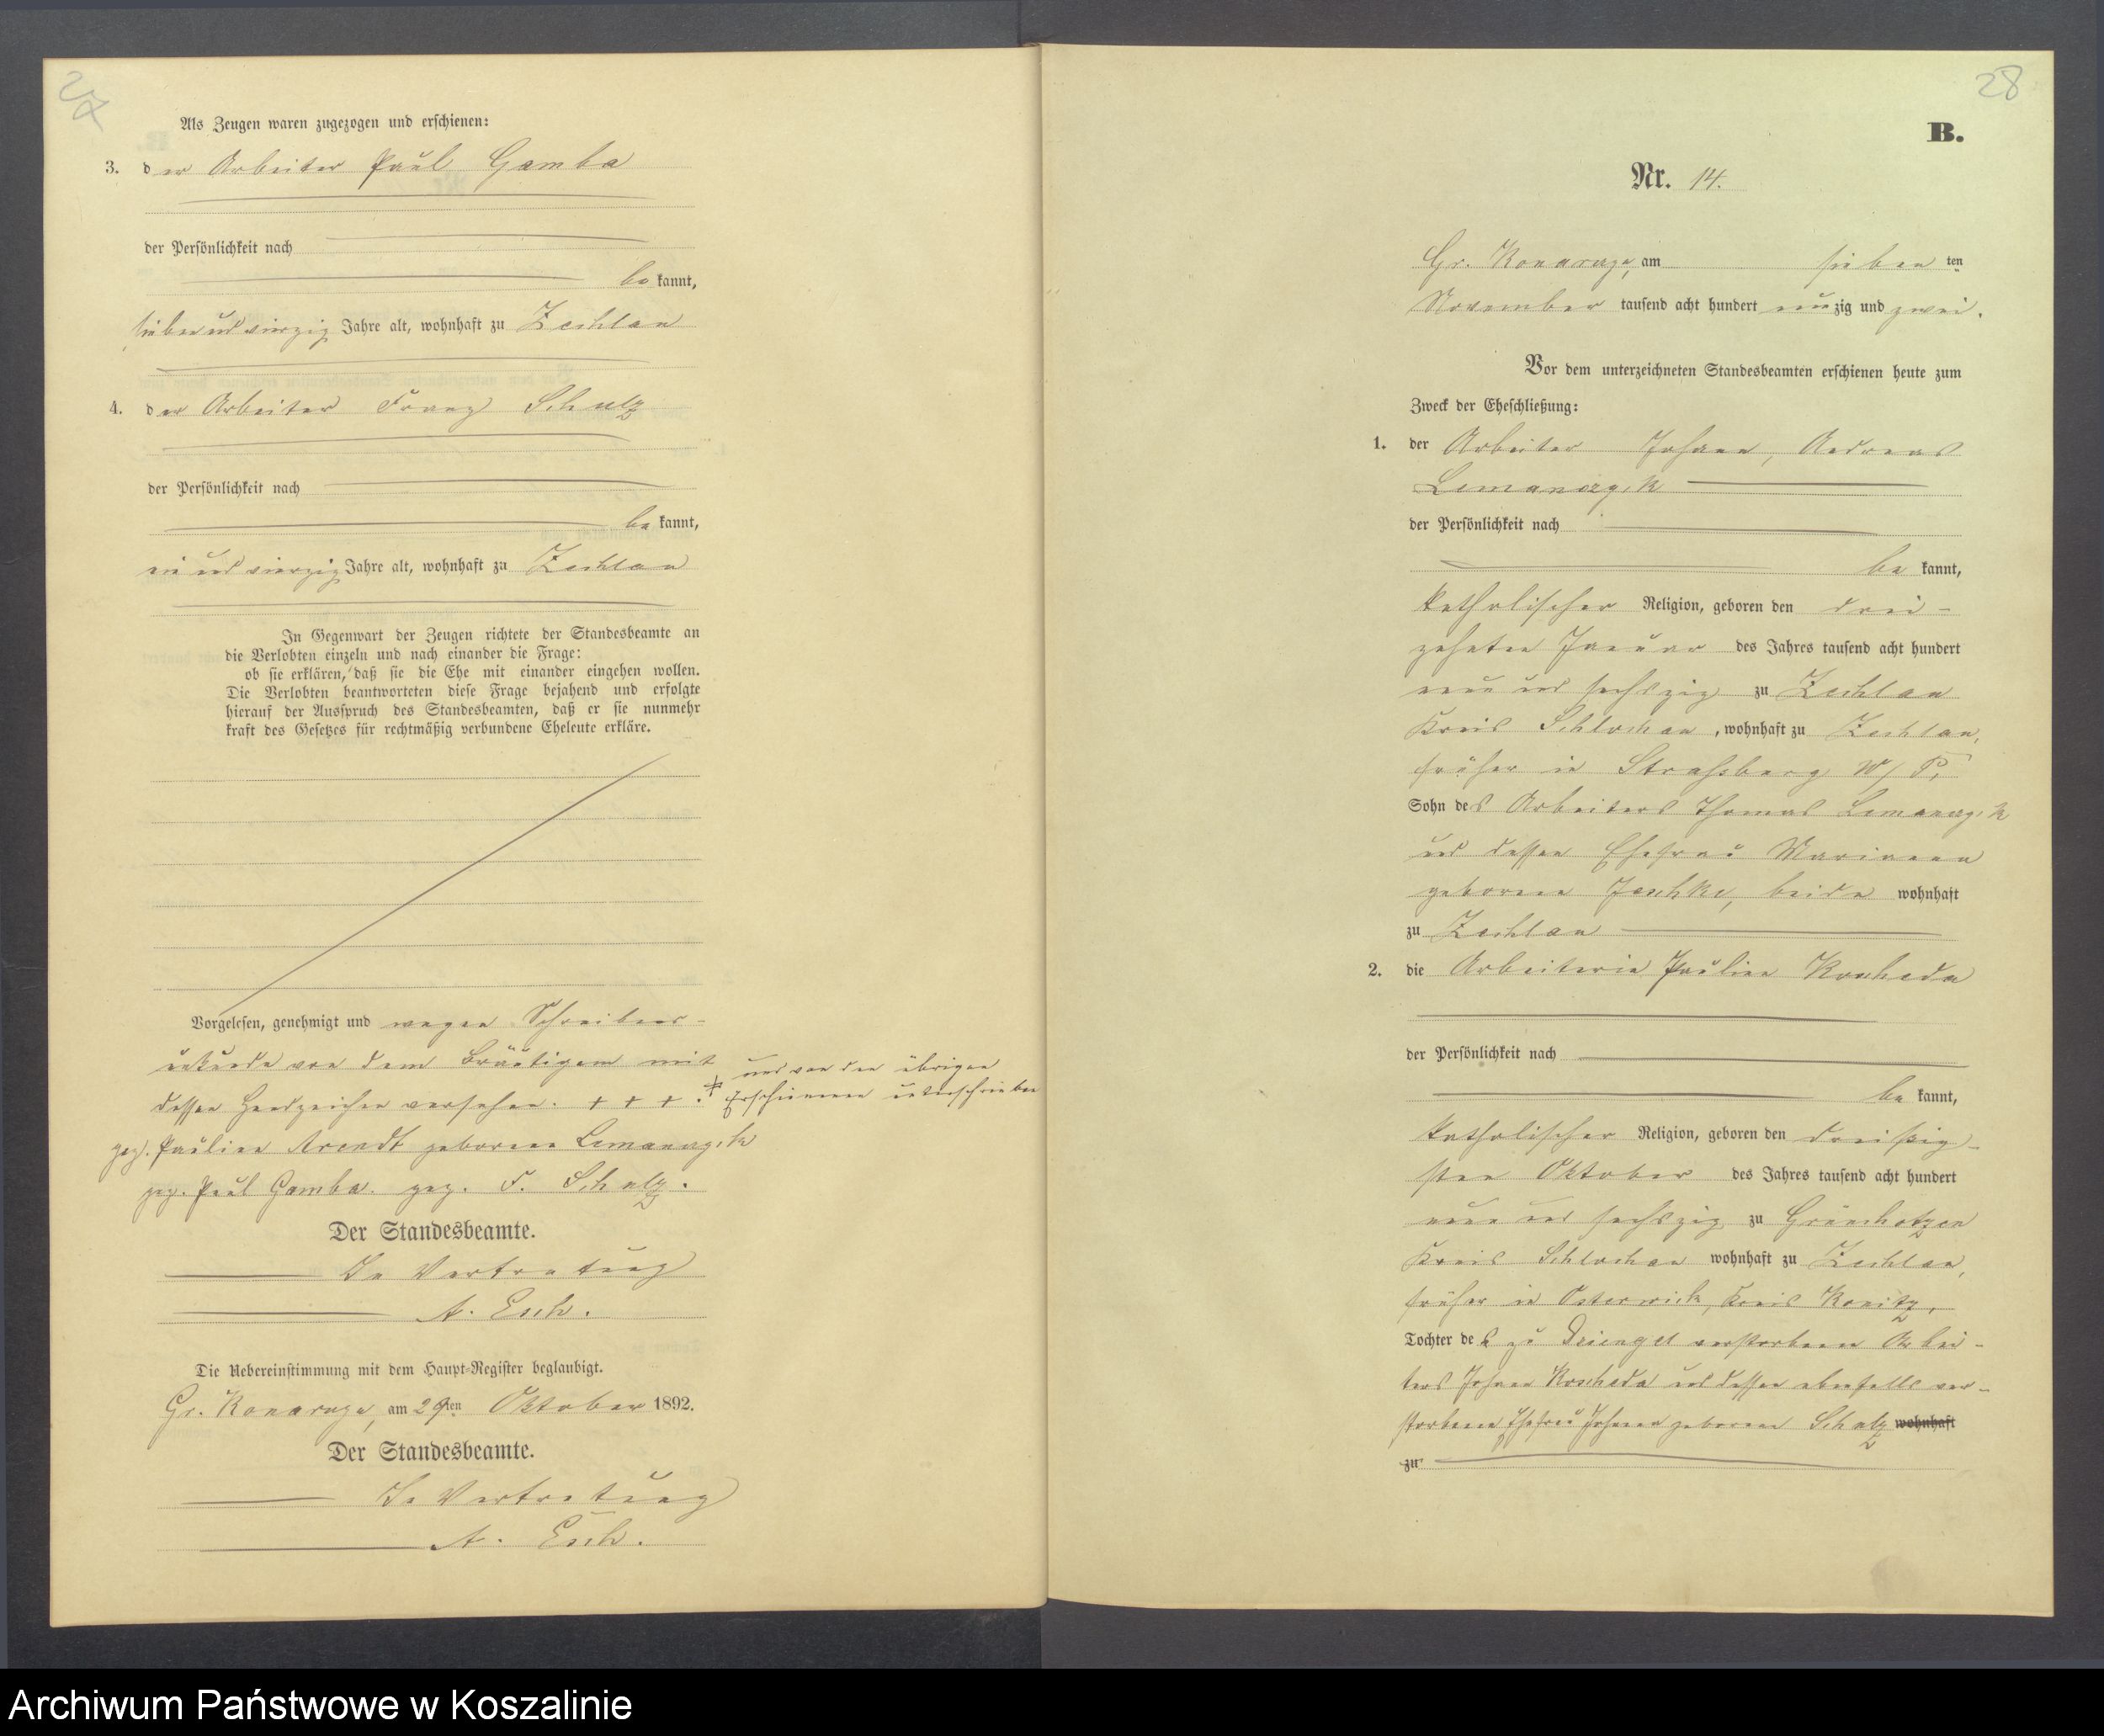 27
Als Zeugen waren zugezogen und erschienen:
3. der Arbeiter Paul Gamba
der Persönlichkeit nach
bekannt,
siebenundvierzig Jahre alt, wohnhaft zu Zechlau
4. der Arbeiter Franz Schulz
der Persönlichkeit nach
bekannt,
ein und vierzig Jahre alt, wohnhaft zu Zechlau
In Gegenwart der Zeugen richtete der Standesbeamte an
die Verlobten einzeln und nach einander die Frage:
ob sie erklären, daß sie die Ehe mit einander eingehen wollen.
Die Verlobten beantworteten diese Frage bejahend und erfolgte
hierauf der Ausspruch des Standesbeamten, daß er sie nunmehr
kraft des Gesetzes für rechtmäßig verbundene Eheleute erkläre.
Vorgelesen, genehmigt und wegen Schreibens-
unkunde von dem Bräutigam mit
dessen Handzeichen versehen. + + + .
* und von den übrigen
Erschienenen unterschrieben
gez. Pauline Arendt geborene Lemanczik
gez. Paul Gamba. gez. F. Schulz.
Der Standesbeamte.
In Vertretung
A. Esch.
Die Uebereinstimmung mit dem Haupt-Register beglaubigt.
Gr. Konarczyn, am 29ten Oktober 1892.
Der Standesbeamte.
In Vertretung
A. Esch.
28
B.
Nr. 14.
Gr. Konarczyn, am sieben ten
November tausend acht hundert neunzig und zwei.
Vor dem unterzeichneten Standesbeamten erschienen heute zum
Zweck der Eheschließung:
1. der Arbeiter Johann, Andreas
Lemanczik
der Persönlichkeit nach
bekannt,
katholischer Religion, geboren den drei-
zehnten Januar des Jahres tausend acht hundert
neun und sechszig zu Zechlau
Kreis Schlochau, wohnhaft zu Zechlau,
früher in Straßburg W/P.
Sohn des Arbeiters Thomas Lemanczik
und dessen Ehefrau Marianna
geborene Jeschke, beide wohnhaft
zu Zechlau
2. die Arbeiterin Pauline Koscheda
der Persönlichkeit nach
bekannt,
katholischer Religion, geboren den dreißig-
sten Oktober des Jahres tausend acht hundert
neun und sechszig zu Grünchotzen
Kreis Schlochau wohnhaft zu Zechlau,
früher in Osterwick, Kreis Konitz,
Tochter des zu verstorbenen Arbei-
ters Johann Koscheda und dessen ebenfalls ver-
storbene Ehefrau Johanna geborene Schulz wohnhaft
zu
Archiwum Państwowe w Koszalinie